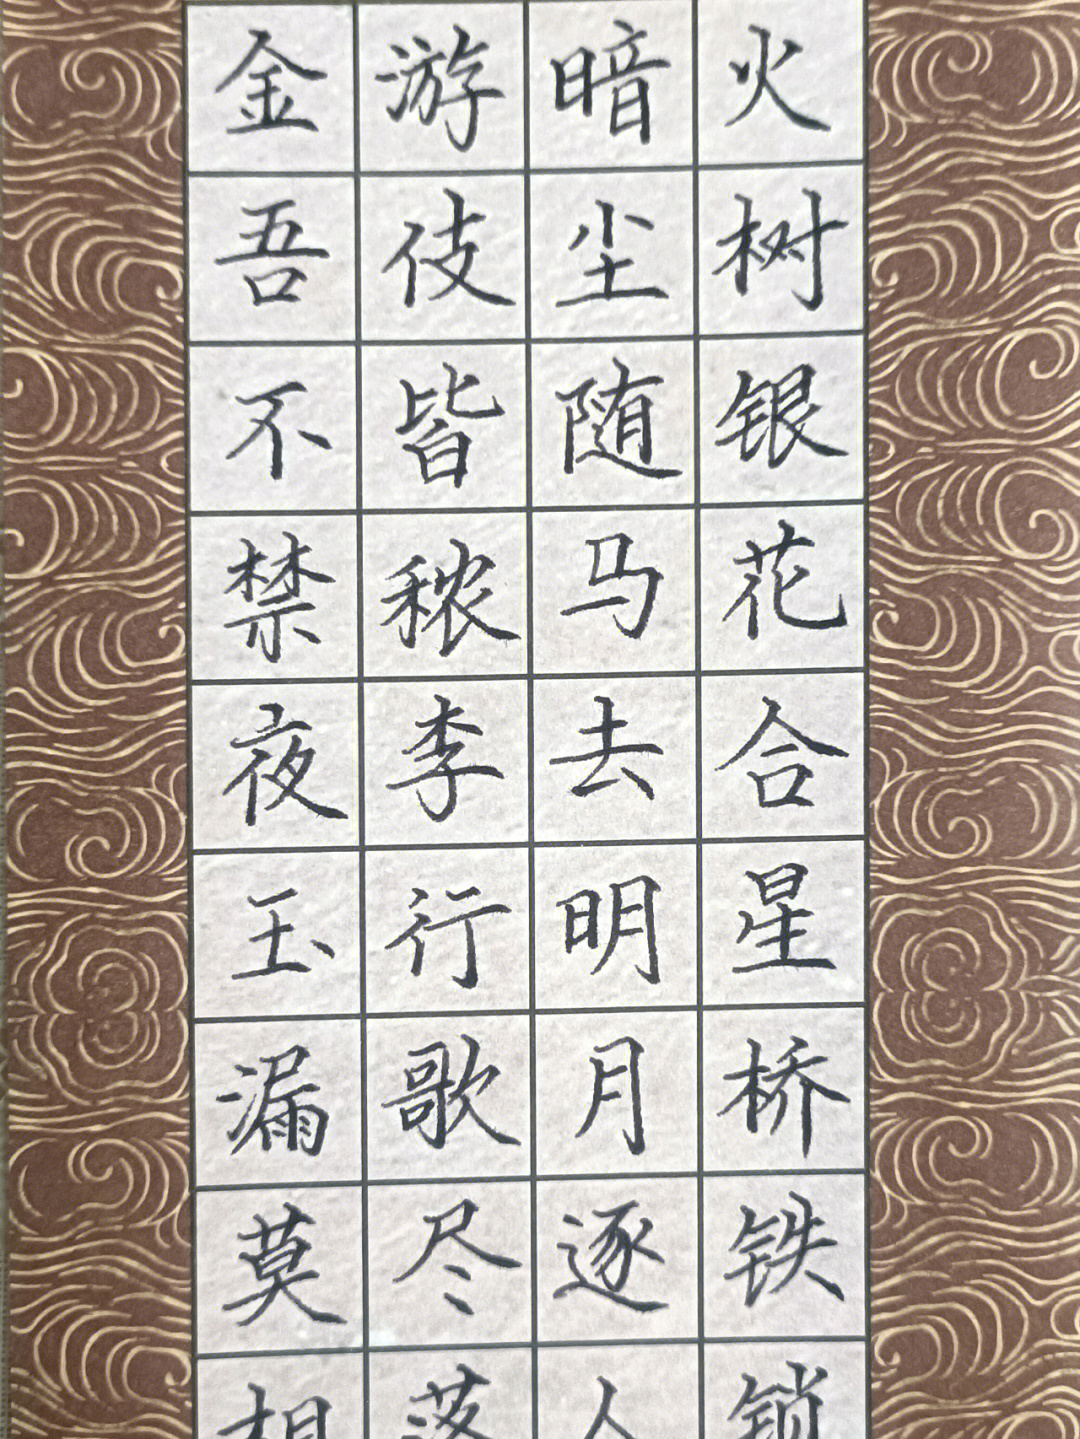 火树银花合星桥铁锁
暗尘随马去明月逐人
游伎皆秾李行歌尽落
金吾不禁夜玉漏莫相